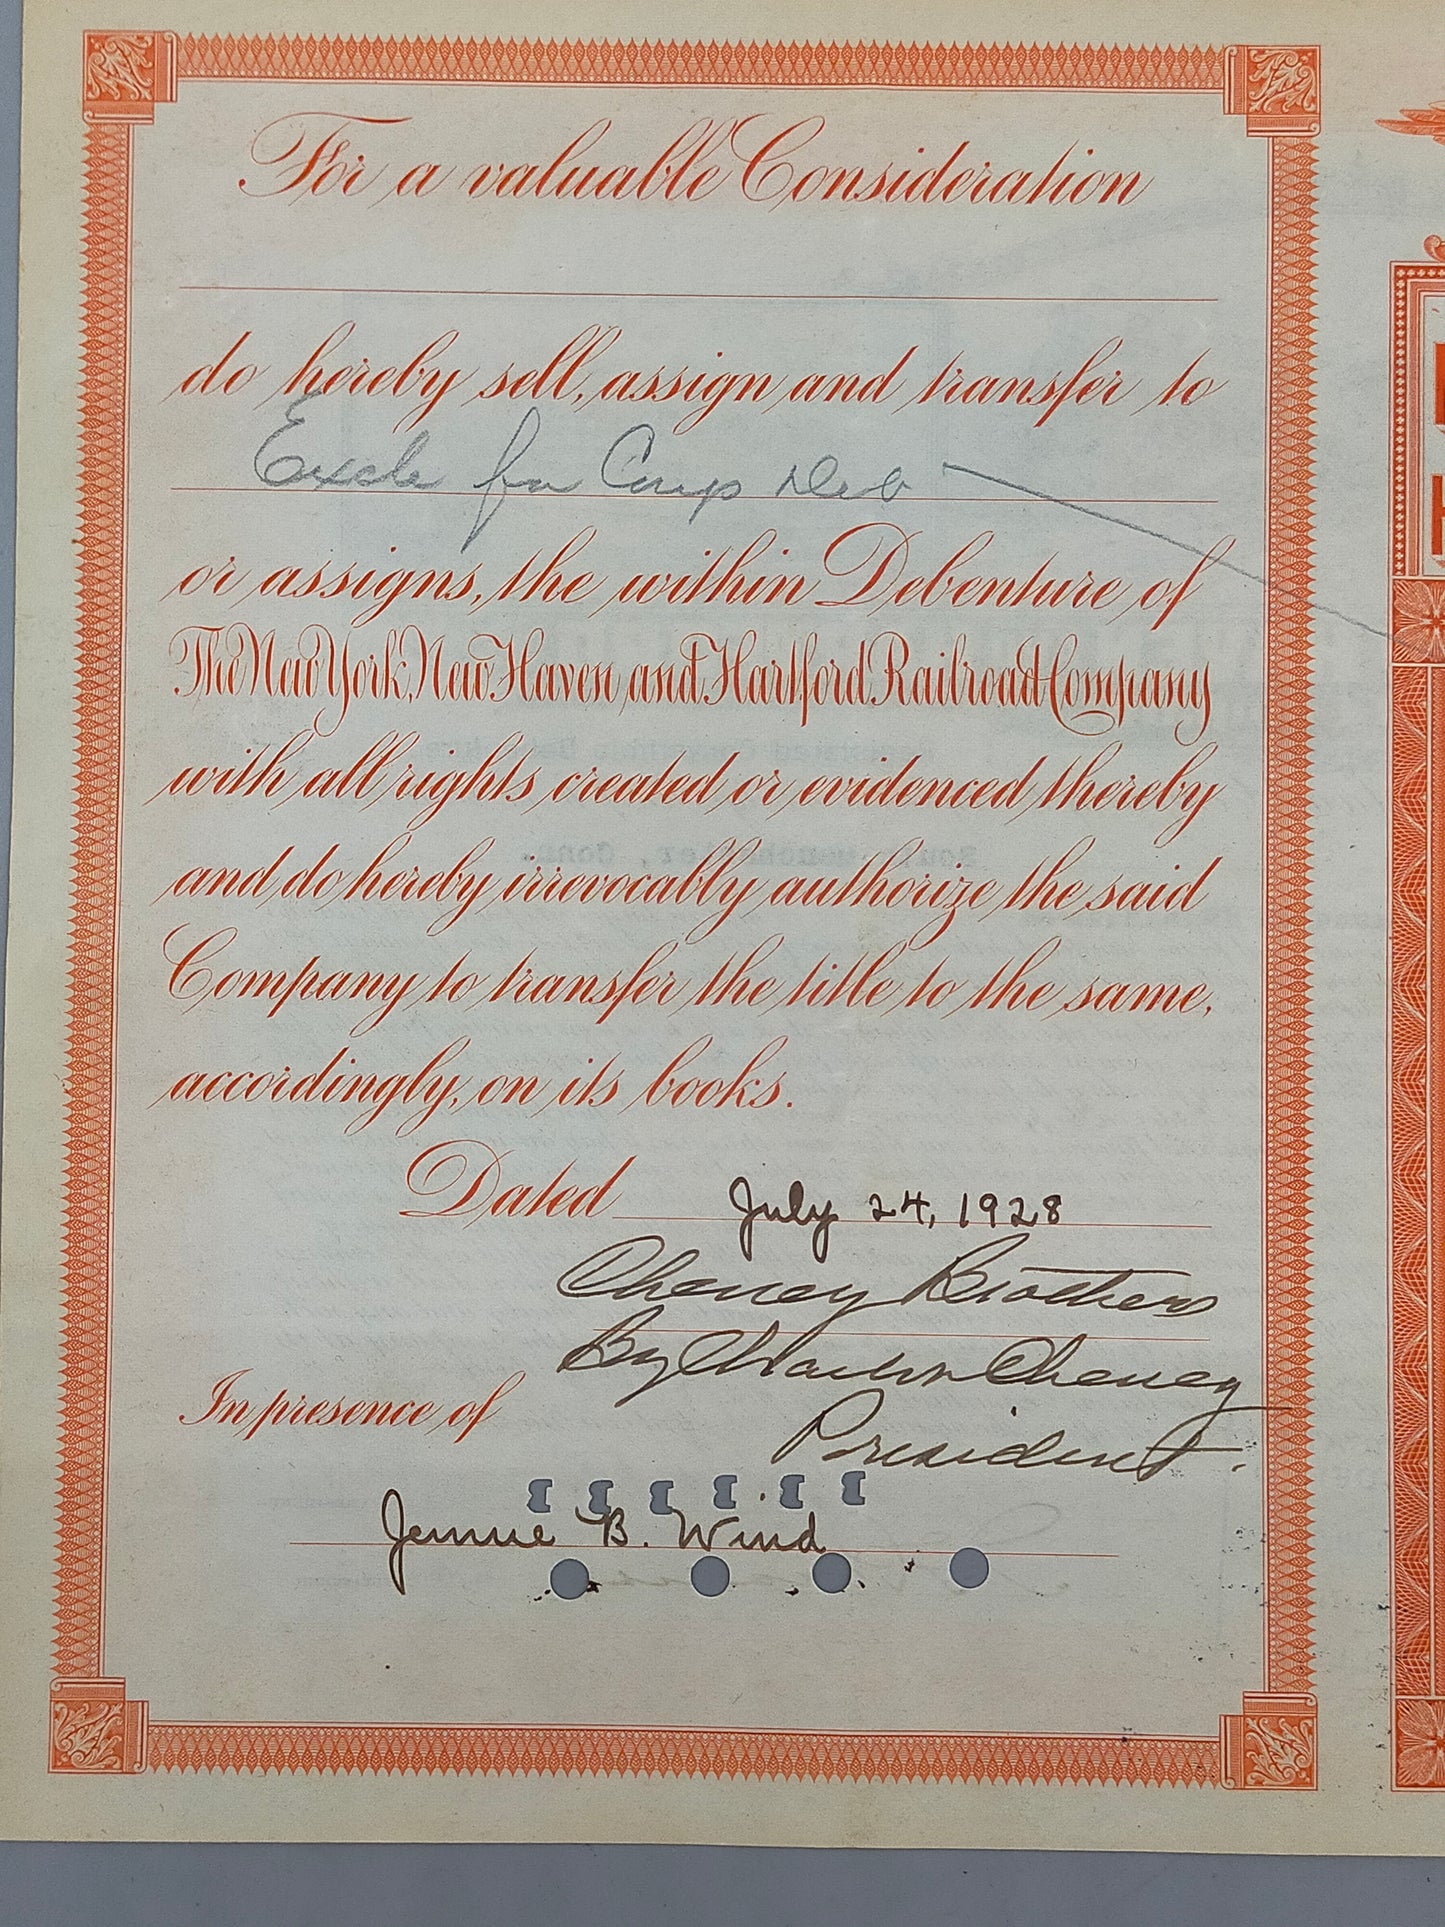 For a valuable Consideration
do hereby sell, assign and transfer to
for Coup Deb
or assigns, the within Debenture of
The New York, New Haven and Hartford Railroad Company
with all rights created or evidenced thereby
and do hereby irrevocably authorize the said
Company to transfer the title to the same,
accordingly, on its books.
Dated July 24, 1928
Cheney Brothers
By Cheney
President.
In presence of
Jennie B. Wind